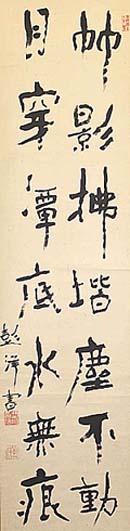 竹影拂堦塵不動
月穿潭底水無痕
彭洋書